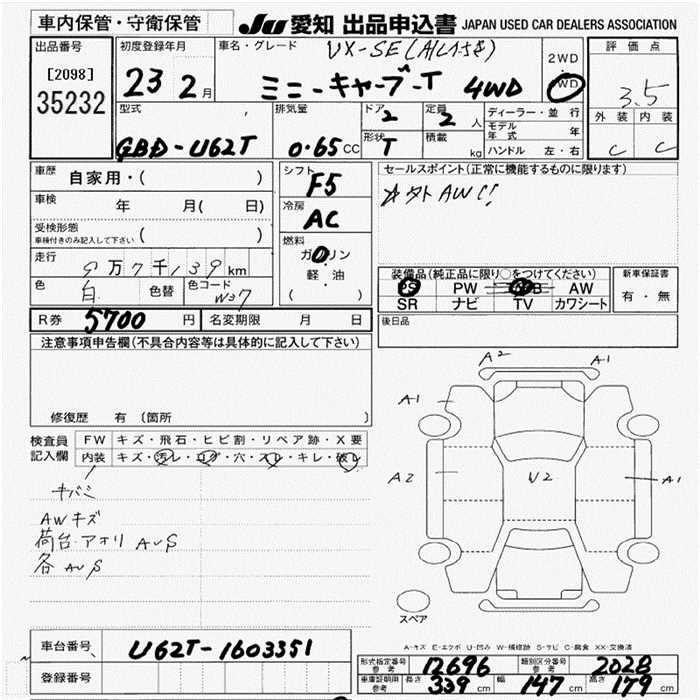 車内保管・守衛保管
JU 愛知 出品申込書 JAPAN USED CAR DEALERS ASSOCIATION
出品番号
[2098]
35232
初度登録年月
23 2月
車名・グレード
ミニーキャーブ-T 4WD
2WD
WD
評価点
3.5
外装 内装
C C
型式
GBD-U62T
排気量
0.65cc
ドア 2
定員 2 人
形状 T
積載 kg
ディーラー・並行
モデル年式 年
ハンドル 左・右
車歴 自家用・( )
車検 年 月( 日)
受検形態
車検付きのみ記入して下さい ( )
走行 9万7千139km
色 白 色替 色コード W37
シフト
F5
冷房
AC
燃料
ガソリン
・
軽・油
( )
セールスポイント(正常に機能するものに限ります)
装備品(純正品に限り○をつけてください)
PS PW AW
SR ナビ TV カワシート
新車保証書
有・無
R券 5700円 名変期限 月 日
後日品
注意事項申告欄(不具合内容等は具体的に記入して下さい)
修復歴 有 〔箇所 〕
検査員記入欄
FW キズ・飛石・ヒビ割・リペア跡・X要
内装 キズ・汚レ・コゲ・穴・スレ・キレ・破レ
キバミ
AWキズ
荷台.アオリ AUS
各AUS
A2
A1
A1
A2
U2
A1
スペア
A-キズ E-エクボ U-凹み W-補修跡 S-サビ C-腐食 XX-交換済
車台番号 U62T-1603351
登録番号
形式指定番号 参考 12696 類別区分番号 参考 2028
車庫証明用 参考 長さ 339cm 幅 147cm 高さ 179cm